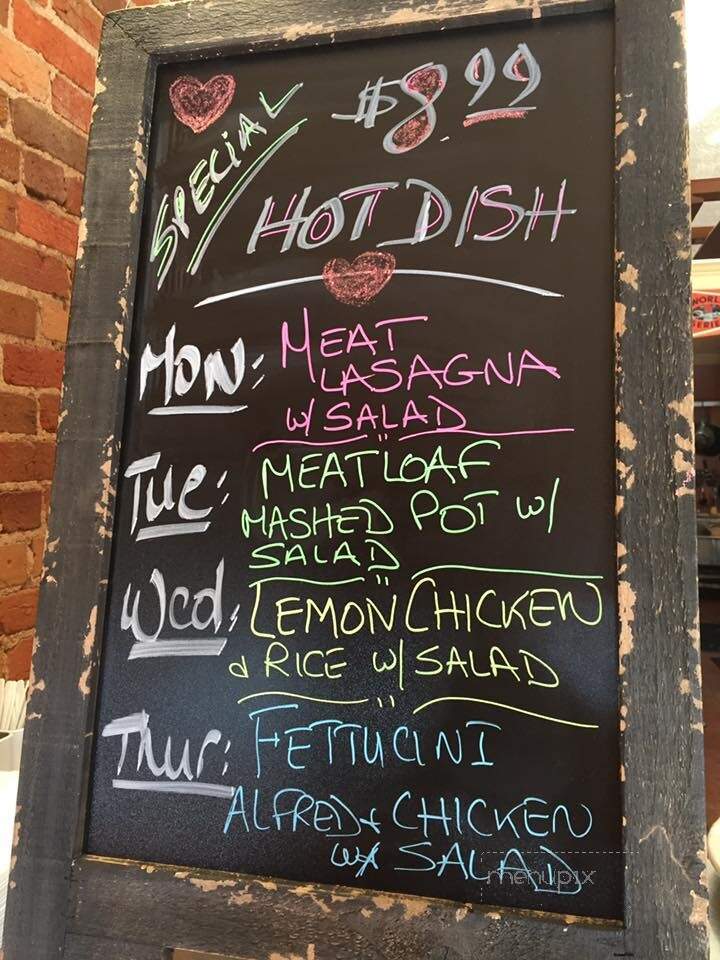 SPECIAL
$8.99
HOT DISH
MON: MEAT
LASAGNA
W/ SALAD
TUE: MEATLOAF
MASHED POT W/
SALAD
Wed: LEMON CHICKEN
& RICE W/ SALAD
THUR: FETTUCINI
ALFRED+ CHICKEN
W/ SALAD
menupix